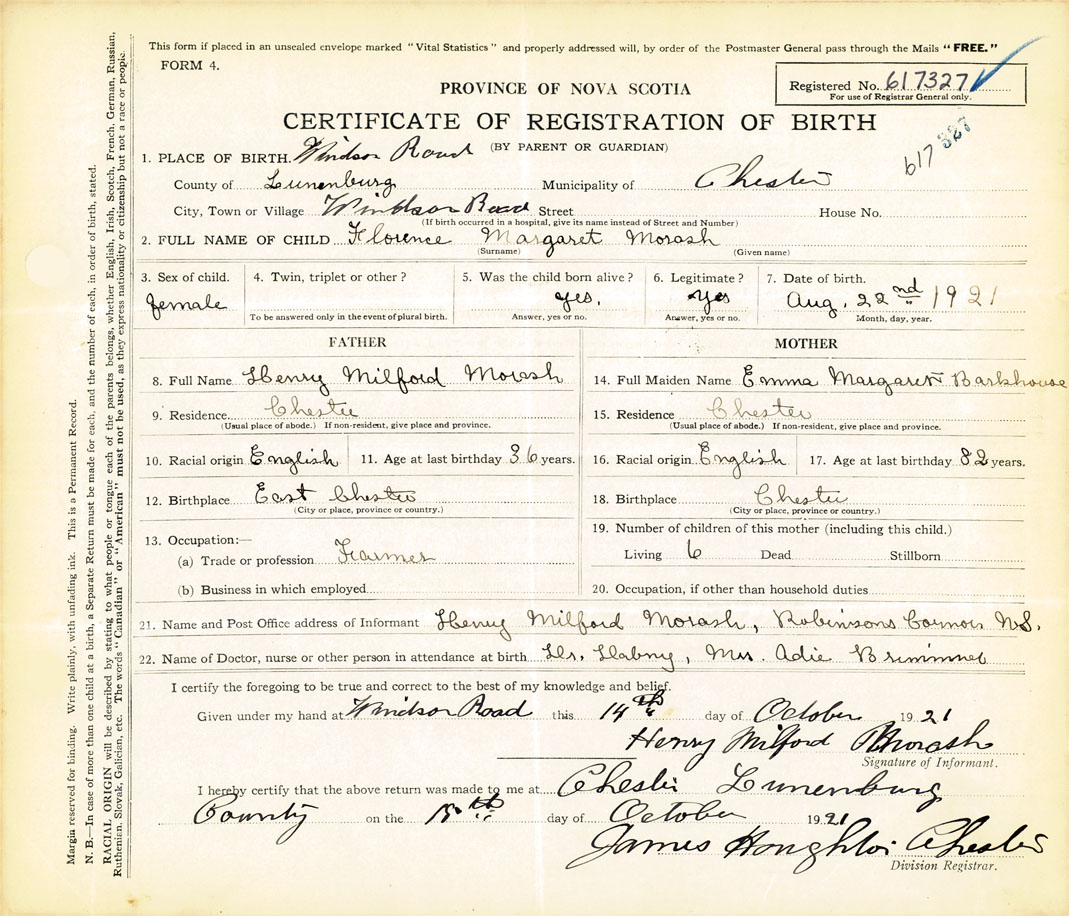 This form if placed in an unsealed envelope marked "Vital Statistics" and properly addressed will, by order of the Postmaster General pass through the Mails "FREE."
FORM 4.
Registered No. 617327
For use of Registrar General only.
PROVINCE OF NOVA SCOTIA
CERTIFICATE OF REGISTRATION OF BIRTH
617 327
(BY PARENT OR GUARDIAN)
1. PLACE OF BIRTH. Windsor Road
County of Lunenburg Municipality of Chester
City, Town or Village Windsor Road Street House No.
(If birth occurred in a hospital, give its name instead of Street and Number)
2. FULL NAME OF CHILD Florence Margaret Morash
(Surname) (Given name)
3. Sex of child. 4. Twin, triplet or other? 5. Was the child born alive? 6. Legitimate? 7. Date of birth.
female yes. yes Aug. 22nd 1921
To be answered only in the event of plural birth. Answer, yes or no. Answer, yes or no. Month, day, year.
FATHER MOTHER
8. Full Name Henry Milford Morash 14. Full Maiden Name Emma Margaret Barkhouse
9. Residence Chester 15. Residence Chester
(Usual place of abode.) If non-resident, give place and province. (Usual place of abode.) If non-resident, give place and province.
10. Racial origin English 11. Age at last birthday 36 years. 16. Racial origin English 17. Age at last birthday 32 years.
12. Birthplace East Chester 18. Birthplace Chester
(City or place, province or country.) (City or place, province or country.)
13. Occupation:— 19. Number of children of this mother (including this child.)
(a) Trade or profession Farmer Living 6 Dead Stillborn
(b) Business in which employed 20. Occupation, if other than household duties
21. Name and Post Office address of Informant Henry Milford Morash, Robinsons Cornors N.S.
22. Name of Doctor, nurse or other person in attendance at birth Dr. Mrs. Adie
I certify the foregoing to be true and correct to the best of my knowledge and belief.
Given under my hand at Windsor Road this 14th day of October 1921
Henry Milford Morash
Signature of Informant.
I hereby certify that the above return was made to me at Chester Lunenburg
County on the 15th day of October 1921
James Houghton Chester
Division Registrar.
Margin reserved for binding. Write plainly, with unfading ink. This is a Permanent Record.
N. B.—In case of more than one child at a birth, a Separate Return must be made for each, and the number of each, in order of birth, stated.
RACIAL ORIGIN will be described by stating to what people or tongue each of the parents belongs, whether English, Irish, Scotch, French, German, Russian,
Ruthenian, Slovak, Galician, etc. The words "Canadian" or "American" must not be used, as they express nationality or citizenship but not a race or people.